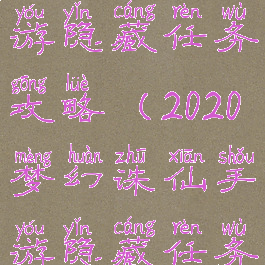 yóu yǐn cáng rèn wù
游隐藏任务
gōng lüè
攻略（2020
mèng huàn zhū xiān shǒu
梦幻诛仙手
yóu yǐn cáng rèn wù
游隐藏任务